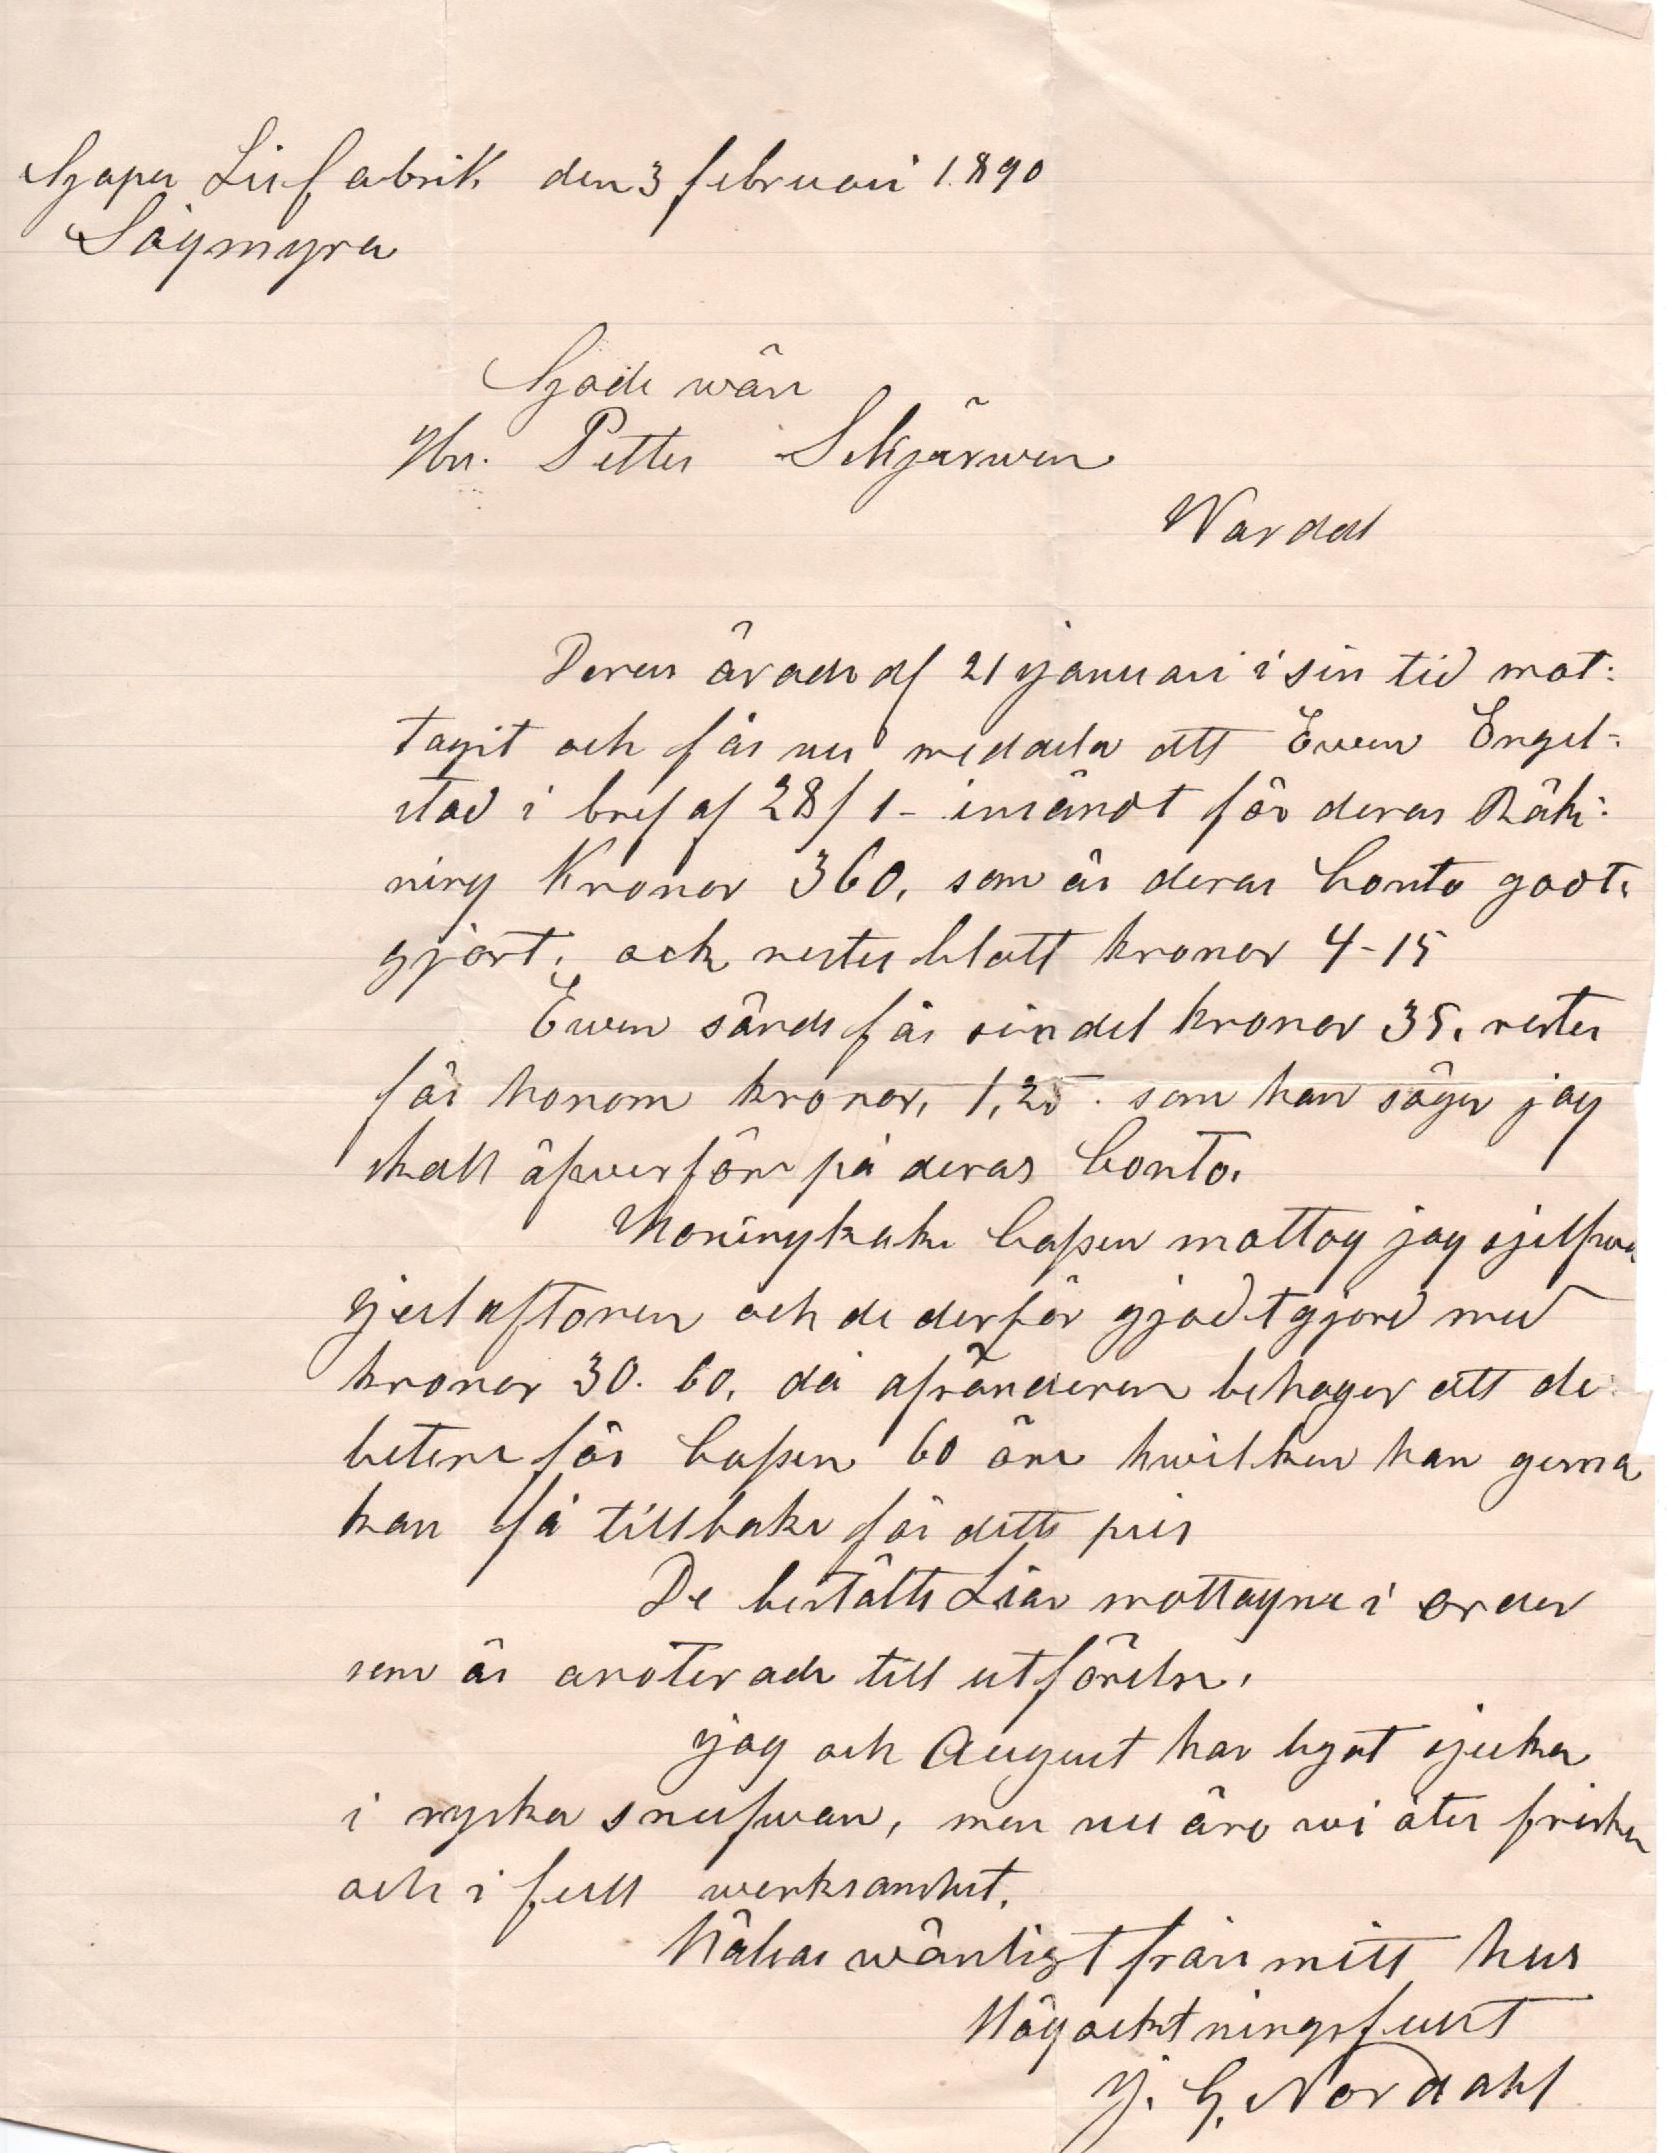 Gjapa Liefabrik den 3 februari 1890
Sågmyra
Gode wän
Hr. Petter Skjärwen
Wardal
Deras ärade af 21 januari i sin tid mot:
tagit och får nu meddela att Ewen Engel-
stad i bref af 28/1 - insändt för deras Räk:
ning Kronor 360, som är deras Conto godt-
gjort, och rester blott kronor 4-15
Ewen sände för sin del kronor 35, rester
för honom kronor, 1,25. som han säger jag
skall äfwerföra på deras Conto.
kassen mottog jag sjelfwa
gjestaftonen och de derför gjodtgjord med
kronor 30. 60, då afsändaren behager att de:
betera för kassen 60 öre hwilken han gerna
kan få tillbaka för detta pris
De bestälte Liar mottagne i order
som är anoterade till utförelse.
jag och August har legat sjuka
i ryska snufwan, men nu äro wi åter friska
och i full werksamhet.
Hälsas wänligt från mitt hus
Högacktningsfullt
J. G. Nordahl